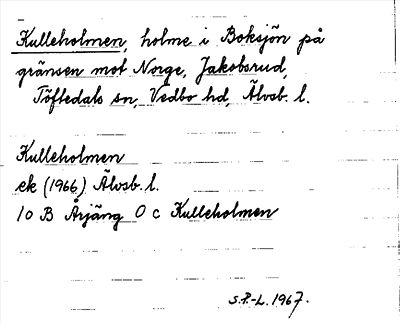 Kulleholmen, holme i Boksjön på
gränsen mot Norge, Jakobsrud,
Töftedals sn, Vedbo hd, Älvsb. l.
Kulleholmen
ek (1966) Älvsb. l.
10 B Årjäng 0 c Kulleholmen
S.P.-L. 1967.